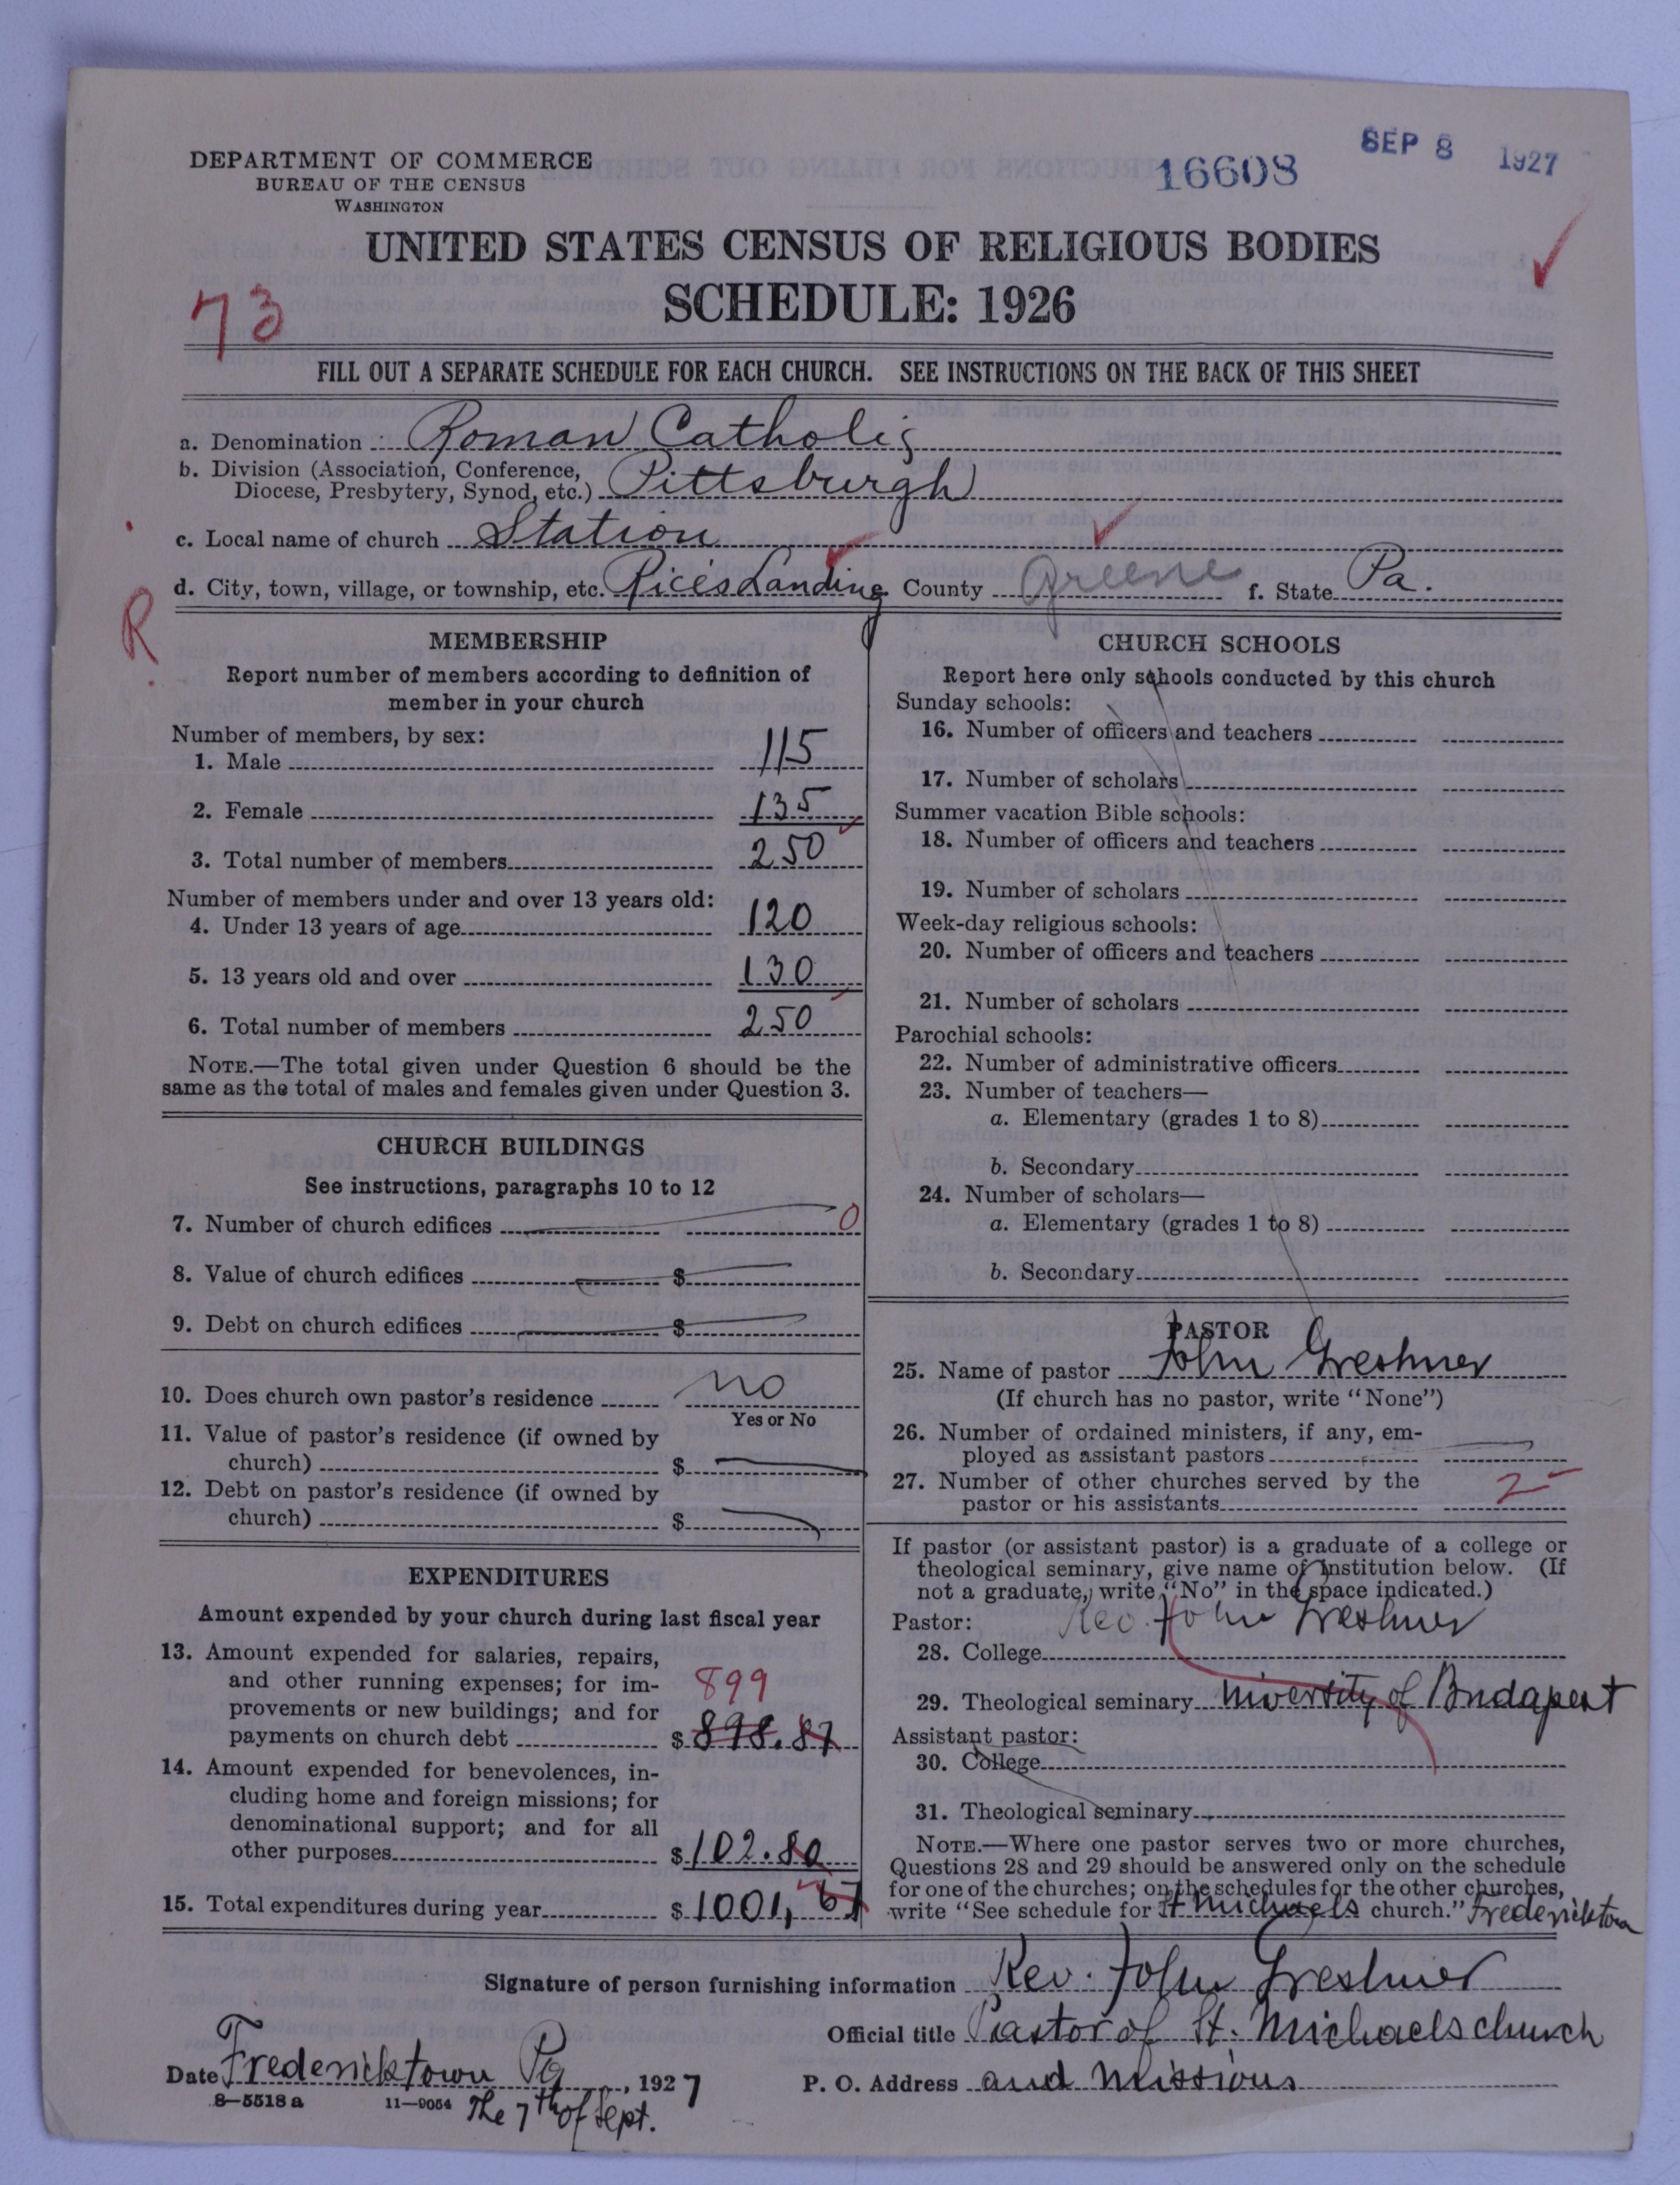 DEPARTMENT OF COMMERCE
BUREAU OF THE CENSUS
WASHINGTON
16608
SEP 8 1927
UNITED STATES CENSUS OF RELIGIOUS BODIES
SCHEDULE: 1926
73
FILL OUT A SEPARATE SCHEDULE FOR EACH CHURCH. SEE INSTRUCTIONS ON THE BACK OF THIS SHEET
a. Denomination Roman Catholic
b. Division (Association, Conference,
Diocese, Presbytery, Synod, etc.) Pittsburgh
c. Local name of church Station
d. City, town, village, or township, etc. Rices Landing County Greene f. State Pa.
R
MEMBERSHIP
Report number of members according to definition of
member in your church
Number of members, by sex:
1. Male 115
2. Female 135
3. Total number of members 250
Number of members under and over 13 years old:
4. Under 13 years of age 120
5. 13 years old and over 130
6. Total number of members 250
NOTE.—The total given under Question 6 should be the
same as the total of males and females given under Question 3.
CHURCH BUILDINGS
See instructions, paragraphs 10 to 12
7. Number of church edifices 0
8. Value of church edifices $
9. Debt on church edifices $
10. Does church own pastor's residence no
Yes or No
11. Value of pastor's residence (if owned by
church) $
12. Debt on pastor's residence (if owned by
church) $
EXPENDITURES
Amount expended by your church during last fiscal year
13. Amount expended for salaries, repairs,
and other running expenses; for im-
899
provements or new buildings; and for
payments on church debt $ 898.87
14. Amount expended for benevolences, in-
cluding home and foreign missions; for
denominational support; and for all
other purposes $ 102.80
15. Total expenditures during year $ 1001,67
CHURCH SCHOOLS
Report here only schools conducted by this church
Sunday schools:
16. Number of officers and teachers
17. Number of scholars
Summer vacation Bible schools:
18. Number of officers and teachers
19. Number of scholars
Week-day religious schools:
20. Number of officers and teachers
21. Number of scholars
Parochial schools:
22. Number of administrative officers
23. Number of teachers—
a. Elementary (grades 1 to 8)
b. Secondary
24. Number of scholars—
a. Elementary (grades 1 to 8)
b. Secondary
PASTOR
25. Name of pastor John Greshner
(If church has no pastor, write "None")
26. Number of ordained ministers, if any, em-
ployed as assistant pastors
27. Number of other churches served by the
pastor or his assistants 2
If pastor (or assistant pastor) is a graduate of a college or
theological seminary, give name of institution below. (If
not a graduate, write "No" in the space indicated.)
Pastor: Rev. John Greshner
28. College
29. Theological seminary University of Budapest
Assistant pastor:
30. College
31. Theological seminary
NOTE.—Where one pastor serves two or more churches,
Questions 28 and 29 should be answered only on the schedule
for one of the churches; on the schedules for the other churches,
write "See schedule for St Michaels church." Fredericktown
Signature of person furnishing information Rev. John Greshner
Official title Pastor of St. Michaels church
Date Fredericktown Pa, 1927
P. O. Address and Missions
8—5518 a 11—9054 The 7th of Sept.